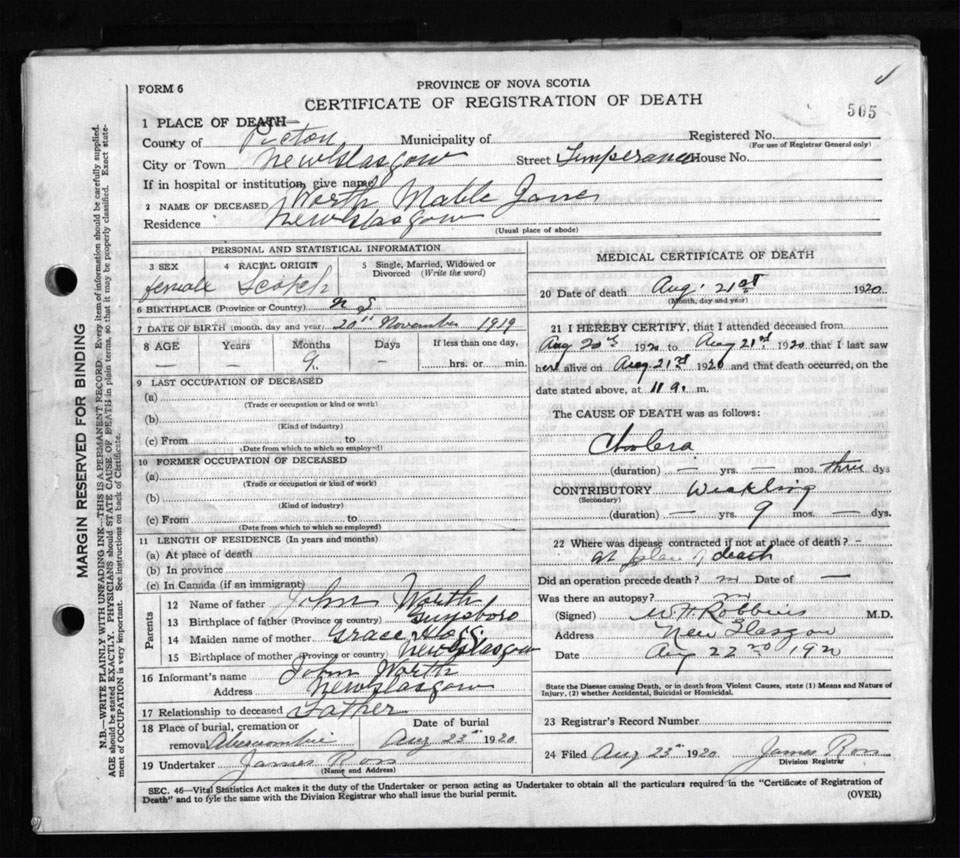 FORM 6
PROVINCE OF NOVA SCOTIA
CERTIFICATE OF REGISTRATION OF DEATH
505
1 PLACE OF DEATH—
County of Pictou Municipality of Registered No.
(For use of Registrar General only)
City or Town New Glasgow Street Temperance House No.
If in hospital or institution, give name
2 NAME OF DECEASED Worth Mable Jane
Residence New Glasgow
(Usual place of abode)
PERSONAL AND STATISTICAL INFORMATION
3 SEX 4 RACIAL ORIGIN 5 Single, Married, Widowed or Divorced (Write the word)
female Scotch
6 BIRTHPLACE (Province or Country) N S
7 DATE OF BIRTH (month, day and year) 20th November 1919
8 AGE Years Months Days If less than one day,
— — 9 — hrs. or min.
9 LAST OCCUPATION OF DECEASED
(a)
(Trade or occupation or kind of work)
(b)
(Kind of industry)
(c) From to
(Date from which to which so employed)
10 FORMER OCCUPATION OF DECEASED
(a)
(Trade or occupation or kind of work)
(b)
(Kind of industry)
(c) From to
(Date from which to which so employed)
11 LENGTH OF RESIDENCE (In years and months)
(a) At place of death
(b) In province
(c) In Canada (if an immigrant)
Parents
12 Name of father John Worth
13 Birthplace of father (Province or country) Guysboro
14 Maiden name of mother Grace
15 Birthplace of mother (Province or country) New Glasgow
16 Informant's name John Worth
Address New Glasgow
17 Relationship to deceased Father
18 Place of burial, cremation or removal Abercrombie Date of burial Aug 23rd 1920
19 Undertaker James Ross
(Name and Address)
MEDICAL CERTIFICATE OF DEATH
20 Date of death Aug. 21st 1920
(Month, day and year)
21 I HEREBY CERTIFY, that I attended deceased from
Aug 20th 1920 to Aug 21st 1920 that I last saw
her alive on Aug 21st 1920 and that death occurred, on the
date stated above, at 11 a. m.
The CAUSE OF DEATH was as follows:
Cholera
(duration) — yrs. — mos. three dys
CONTRIBUTORY Weakling
(Secondary)
(duration) — yrs. 9 mos. — dys.
22 Where was disease contracted if not at place of death? –
at place of death
Did an operation precede death? no Date of —
Was there an autopsy? no
(Signed) W. H. Robbins M.D.
Address New Glasgow
Date Aug 22nd 1920
State the Disease causing Death, or in death from Violent Causes, state (1) Means and Nature of
Injury, (2) whether Accidental, Suicidal or Homicidal.
23 Registrar's Record Number
24 Filed Aug 23rd 1920 James Ross
Division Registrar
SEC. 46—Vital Statistics Act makes it the duty of the Undertaker or person acting as Undertaker to obtain all the particulars required in the "Certificate of Registration of
Death" and to fyle the same with the Division Registrar who shall issue the burial permit. (OVER)
MARGIN RESERVED FOR BINDING
N.B.—WRITE PLAINLY WITH UNFADING INK—THIS IS A PERMANENT RECORD. Every item of information should be carefully supplied.
AGE should be stated EXACTLY. PHYSICIANS should STATE CAUSE OF DEATH in plain terms, so that it may be properly classified. Exact state-
ment of OCCUPATION is very important. See instructions on back of Certificate.